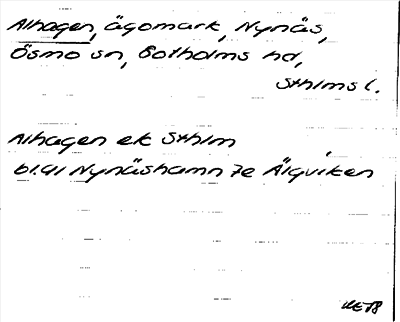 Alhagen, ägomark, Nynäs,
Ösmo sn, Sotholms hd,
Sthlms l.
Alhagen ek Sthlm
bl.91 Nynäshamn 7e Älgviken